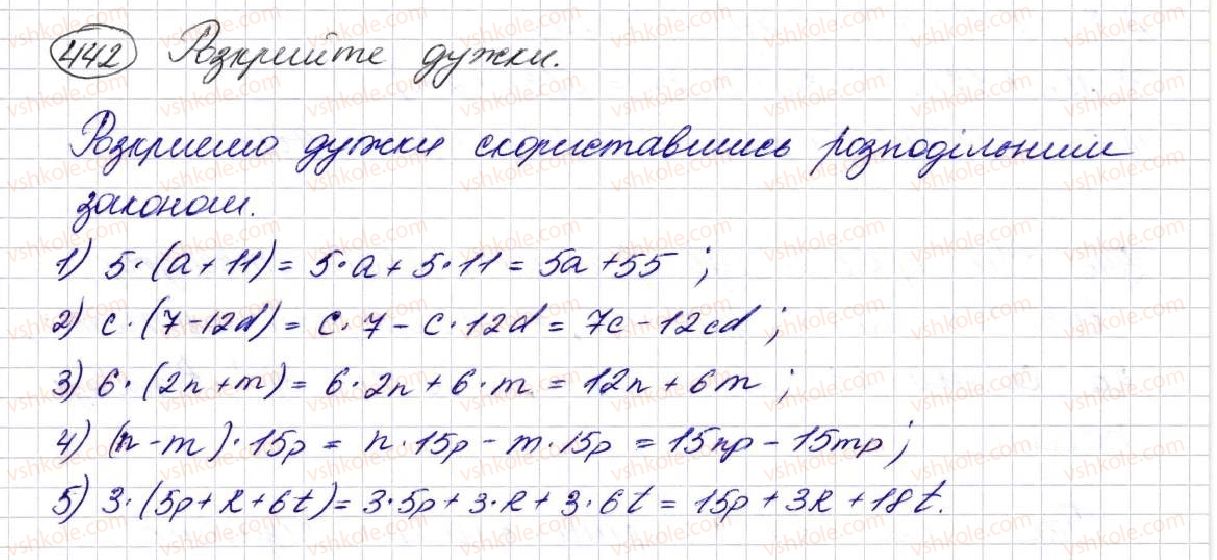 442 Розкрийте дужки.
Розкриємо дужки скориставшись розподільним
законом.
1) 5·(a+11)=5·a+5·11=5a+55;
2) c·(7-12d)=c·7-c·12d=7c-12cd;
3) 6·(2n+m)=6·2n+6·m=12n+6m;
4) (n-m)·15p=n·15p-m·15p=15np-15mp;
5) 3·(5p+k+6t)=3·5p+3·k+3·6t=15p+3k+18t.
vshkole.com